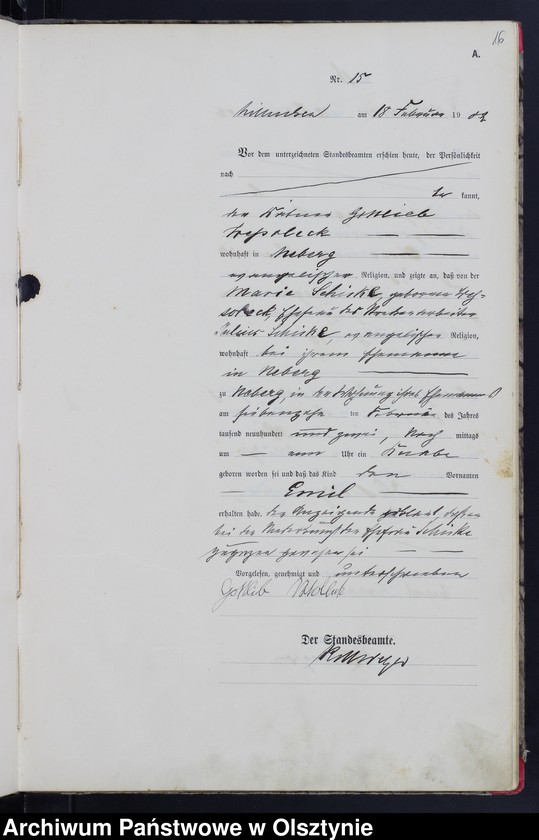 16
A.
Nr. 15
am 18 Februar 1902
Vor dem unterzeichneten Standesbeamten erschien heute, der Persönlichkeit
nach
be kannt,
der Kätner Gottlieb
wohnhaft in Neberg
evangelischer Religion, und zeigte an, daß von der
Marie Schicke, geborenen
Ehefrau des
Julius Schicke, evangelischer Religion,
wohnhaft bei ihrem Ehemanne
in Neberg
zu Neberg, in der Wohnung ihres Ehemannes
am siebenzehn ten Februar des Jahres
tausend neunhundert und zwei, Nach mittags
um — ein Uhr ein Knabe
geboren worden sei und daß das Kind den Vornamen
Emil
erhalten habe. Der Anzeigende erklärt, daß er
bei der Niederkunft der Ehefrau Schicke
zugegen gewesen sei
Vorgelesen, genehmigt und unterschrieben
Gottlib
Der Standesbeamte.
Archiwum Państwowe w Olsztynie